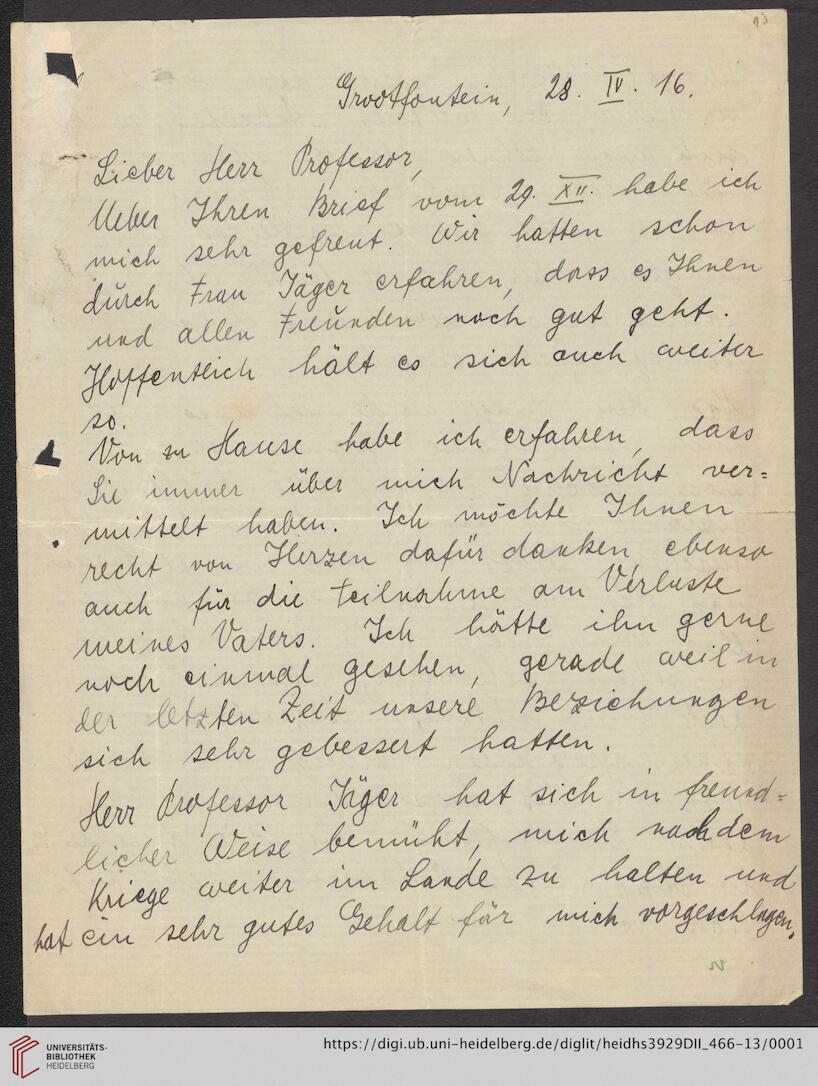 93
Grootfontein, 28. IV. 16.
Lieber Herr Professor,
Ueber Ihren Brief vom 29. XII. habe ich
mich sehr gefreut. Wir hatten schon
durch Frau Jäger erfahren, dass es Ihnen
und allen Freunden noch gut geht.
Hoffentlich hält es sich auch weiter
so.
Von zu Hause habe ich erfahren, dass
Sie immer über mich Nachricht ver=
mittelt haben. Ich möchte Ihnen
recht von Herzen dafür danken ebenso
auch für die Teilnahme am Verluste
meines Vaters. Ich hätte ihn gerne
noch einmal gesehen, gerade weil in
der letzten Zeit unsere Beziehungen
sich sehr gebessert hatten.
Herr Professor Jäger hat sich in freund=
licher Weise bemüht, mich nach dem
Kriege weiter im Lande zu halten und
hat ein sehr gutes Gehalt für mich vorgeschlagen.
UNIVERSITÄTS-
BIBLIOTHEK
HEIDELBERG
https://digi.ub.uni-heidelberg.de/diglit/heidhs3929DII_466-13/0001